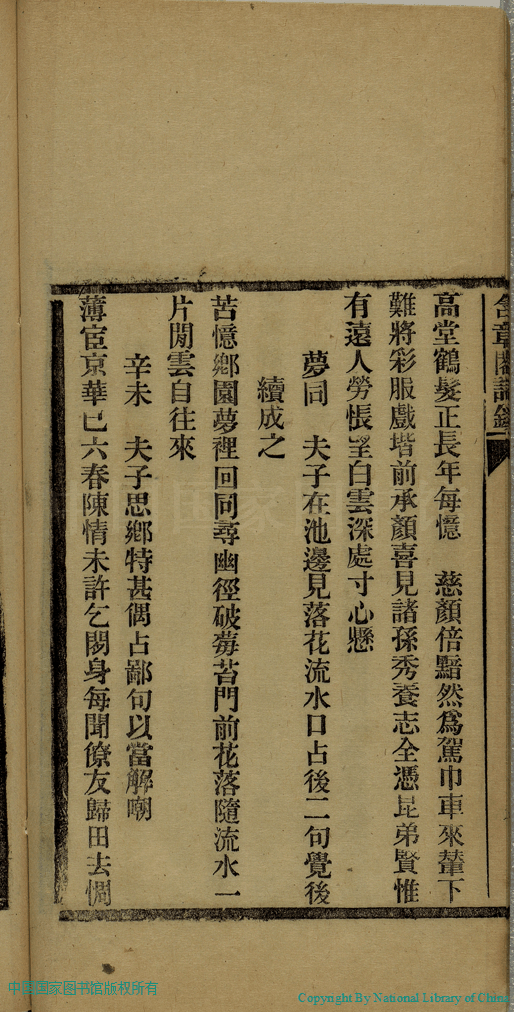 含章閣詩鈔
高堂鶴髮正長年每憶　慈顏倍黯然爲駕巾車來輦下
難將彩服戲堦前承顏喜見諸孫秀養志全憑昆弟賢惟
有遠人勞悵望白雲深處寸心懸
夢同　夫子在池邊見落花流水口占後二句覺後
續成之
苦憶鄉園夢裡回同尋幽徑破莓苔門前花落隨流水一
片閒雲自往來
辛未　夫子思鄉特甚偶占鄙句以當解嘲
薄宦京華已六春陳情未許乞閒身每聞僚友歸田去惆
中国国家图书馆版权所有
Copyright By National Library of China